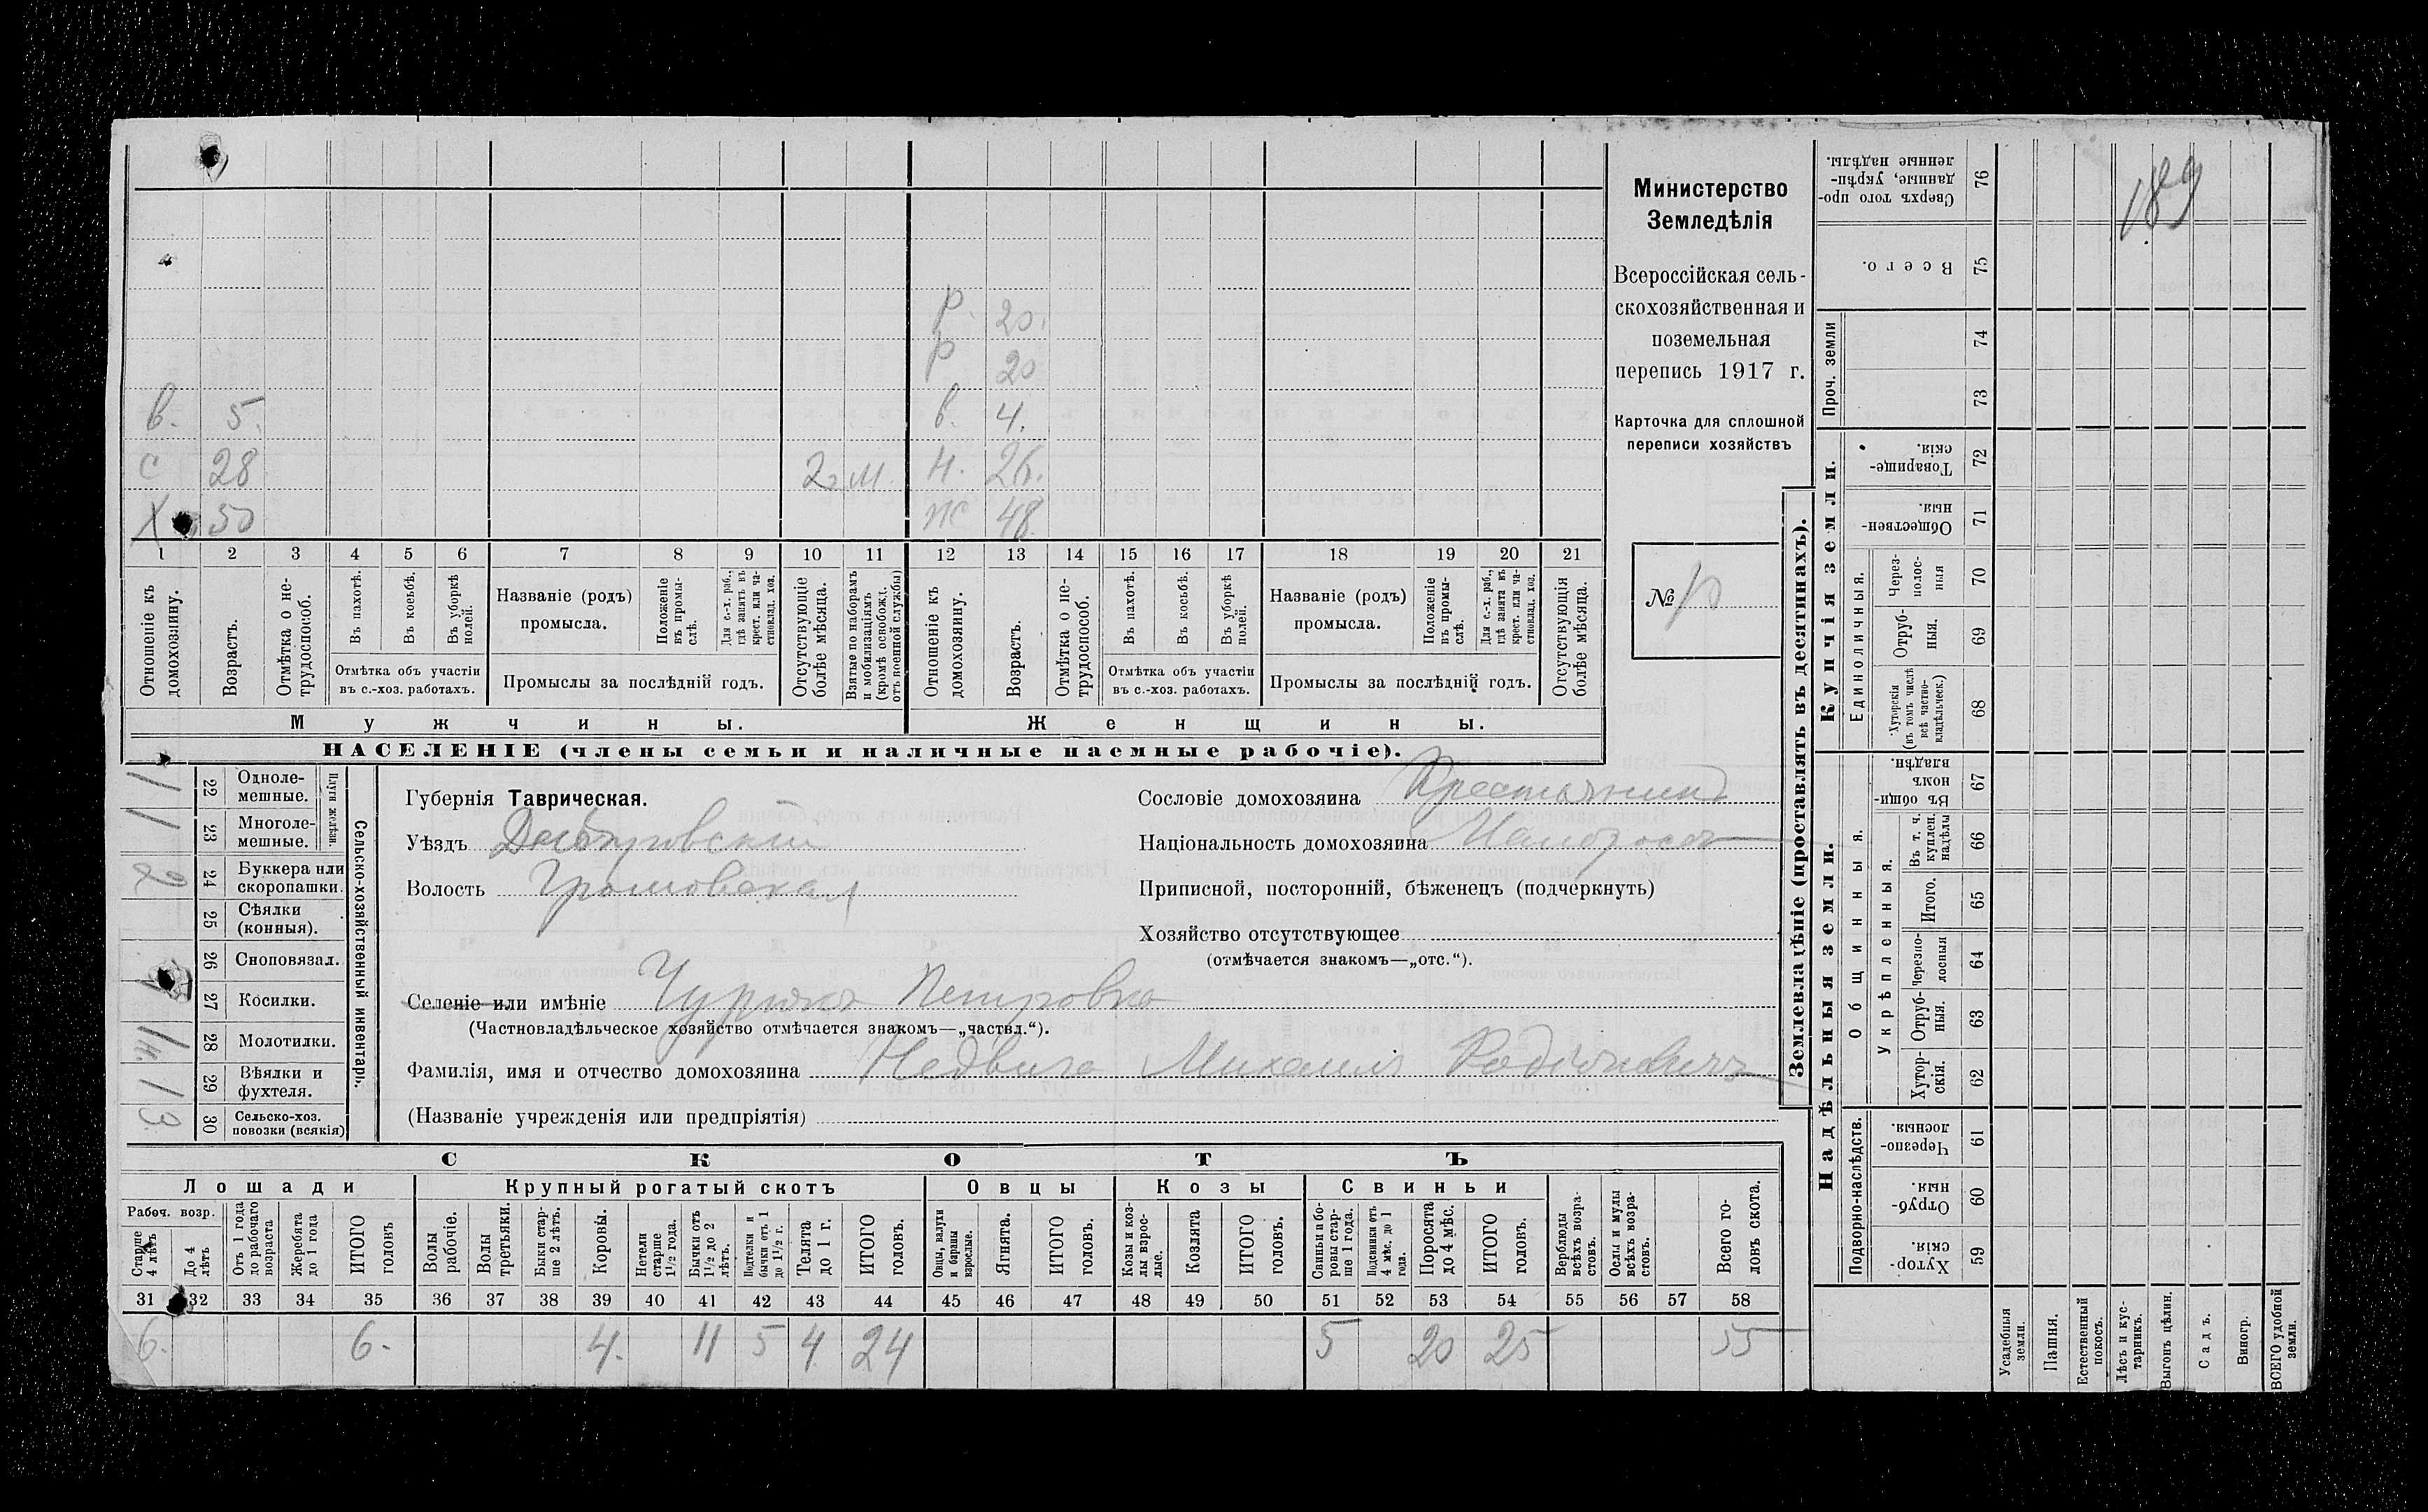 Министерство
Земледѣлія
Всероссійская сель-
скохозяйственная и
поземельная
перепись 1917 г.
Карточка для сплошной
переписи хозяйствъ
№
189
р. 20.
р 20
в. 5. в. 4.
с 28 2 м. н. 26.
х 50 ж 48
1 2 3 4 5 6 7 8 9 10 11 12 13 14 15 16 17 18 19 20 21
Отношеніе къ домохозяину.
Возрастъ.
Отмѣтка о не-трудоспособ.
Въ пахотѣ.
Въ косьбѣ.
Въ уборкѣ полей.
Отмѣтка объ участіи
въ с.-хоз. работахъ.
Названіе (родъ)
промысла.
Положеніе въ промы-слѣ.
Для с.-х. раб., гдѣ занятъ въ крест. или ча-стновлад. хоз.
Промыслы за послѣдній годъ.
Отсутствующіе болѣе мѣсяца.
Взятые по наборамъ и мобилизаціямъ (кромѣ освобожд. отъ военной службы)
Отношеніе къ домохозяину.
Возрастъ.
Отмѣтка о не-трудоспособ.
Въ пахотѣ.
Въ косьбѣ.
Въ уборкѣ полей.
Отмѣтка объ участіи
въ с.-хоз. работахъ.
Названіе (родъ)
промысла.
Положеніе въ промы-слѣ.
Для с.-х. раб., гдѣ занята въ крест. или ча-стновлад. хоз.
Промыслы за послѣдній годъ.
Отсутствующія болѣе мѣсяца.
Мужчины. Женщины.
НАСЕЛЕНІЕ (члены семьи и наличные наемные рабочіе).
Сельско-хозяйственный инвентарь.
Плуги желѣзн.
22 Одноле-мешные. 1
23 Многоле-мешные. 1
24 Буккера или скоропашки. 2
25 Сѣялки (конныя).
26 Сноповязал.
27 Косилки.
28 Молотилки. 1 н.
29 Вѣялки и фухтеля. 1
30 Сельско-хоз. повозки (всякія) 3
Губернія Таврическая.
Уѣздъ Днѣпровскій
Волость Громовская
Сословіе домохозяина Крестьянинъ
Національность домохозяина Малоросъ
Приписной, посторонній, бѣженецъ (подчеркнуть)
Хозяйство отсутствующее
(отмѣчается знакомъ—„отс.“).
Селеніе или имѣніе Чурюкъ Петровка
(Частновладѣльческое хозяйство отмѣчается знакомъ—„частвл.“).
Фамилія, имя и отчество домохозяина Недвига Михаилъ Родіоновичъ
(Названіе учрежденія или предпріятія)
СКОТЪ
Лошади Крупный рогатый скотъ Овцы Козы Свиньи
Рабоч. возр.
Старше 4 лѣтъ
До 4 лѣтъ
Отъ 1 года до рабочаго возраста
Жеребята до 1 года
ИТОГО головъ
Волы рабочіе.
Волы третьяки.
Быки стар-ше 2 лѣтъ.
Коровы.
Нетели старше 1½ года.
Бычки отъ 1½ до 2 лѣтъ.
Подтелки и бычки отъ 1 до 1½ г.
Телята до 1 г.
ИТОГО головъ.
Овцы, валухи и бараны взрослые.
Ягнята.
ИТОГО головъ.
Козы и коз-лы взрос-лые.
Козлята
ИТОГО головъ.
Свиньи и бо-ровы стар-ше 1 года.
Подсвинки отъ 4 мѣс. до 1 года.
Поросята до 4 мѣс.
ИТОГО головъ.
Верблюды всѣхъ возра-стовъ.
Ослы и мулы всѣхъ возра-стовъ.
Всего го-ловъ скота.
31 32 33 34 35 36 37 38 39 40 41 42 43 44 45 46 47 48 49 50 51 52 53 54 55 56 57 58
6. 6. 4. 11 5 4 24 5 20 25 55
Землевладѣніе (проставлять въ десятинахъ).
Купчія земли.
Надѣльныя земли.
Сверхъ того про-данные, укрѣп-ленные надѣлы. 76
Всего. 75
Проч. земли 74
73
Товарище-скія. 72
Обществен-ныя. 71
Единоличныя.
Через-полос-ныя 70
Отруб-ныя. 69
Хуторскія (въ томъ числѣ всѣ частно-владѣльческ.) 68
Общинныя.
Въ общин-номъ владѣн. 67
Укрѣпленныя.
Въ т. ч. куплен. надѣлы 66
Итого. 65
Черезпо-лосныя 64
Отруб-ныя. 63
Хутор-скія. 62
Подворно-наслѣдств.
Черезпо-лосныя. 61
Отруб-ныя. 60
Хутор-скія. 59
Усадебныя земли.
Пашня.
Естественный покосъ.
Лѣсъ и кус-тарникъ.
Выгонъ цѣлин.
Садъ.
Виногр.
ВСЕГО удобной земли.